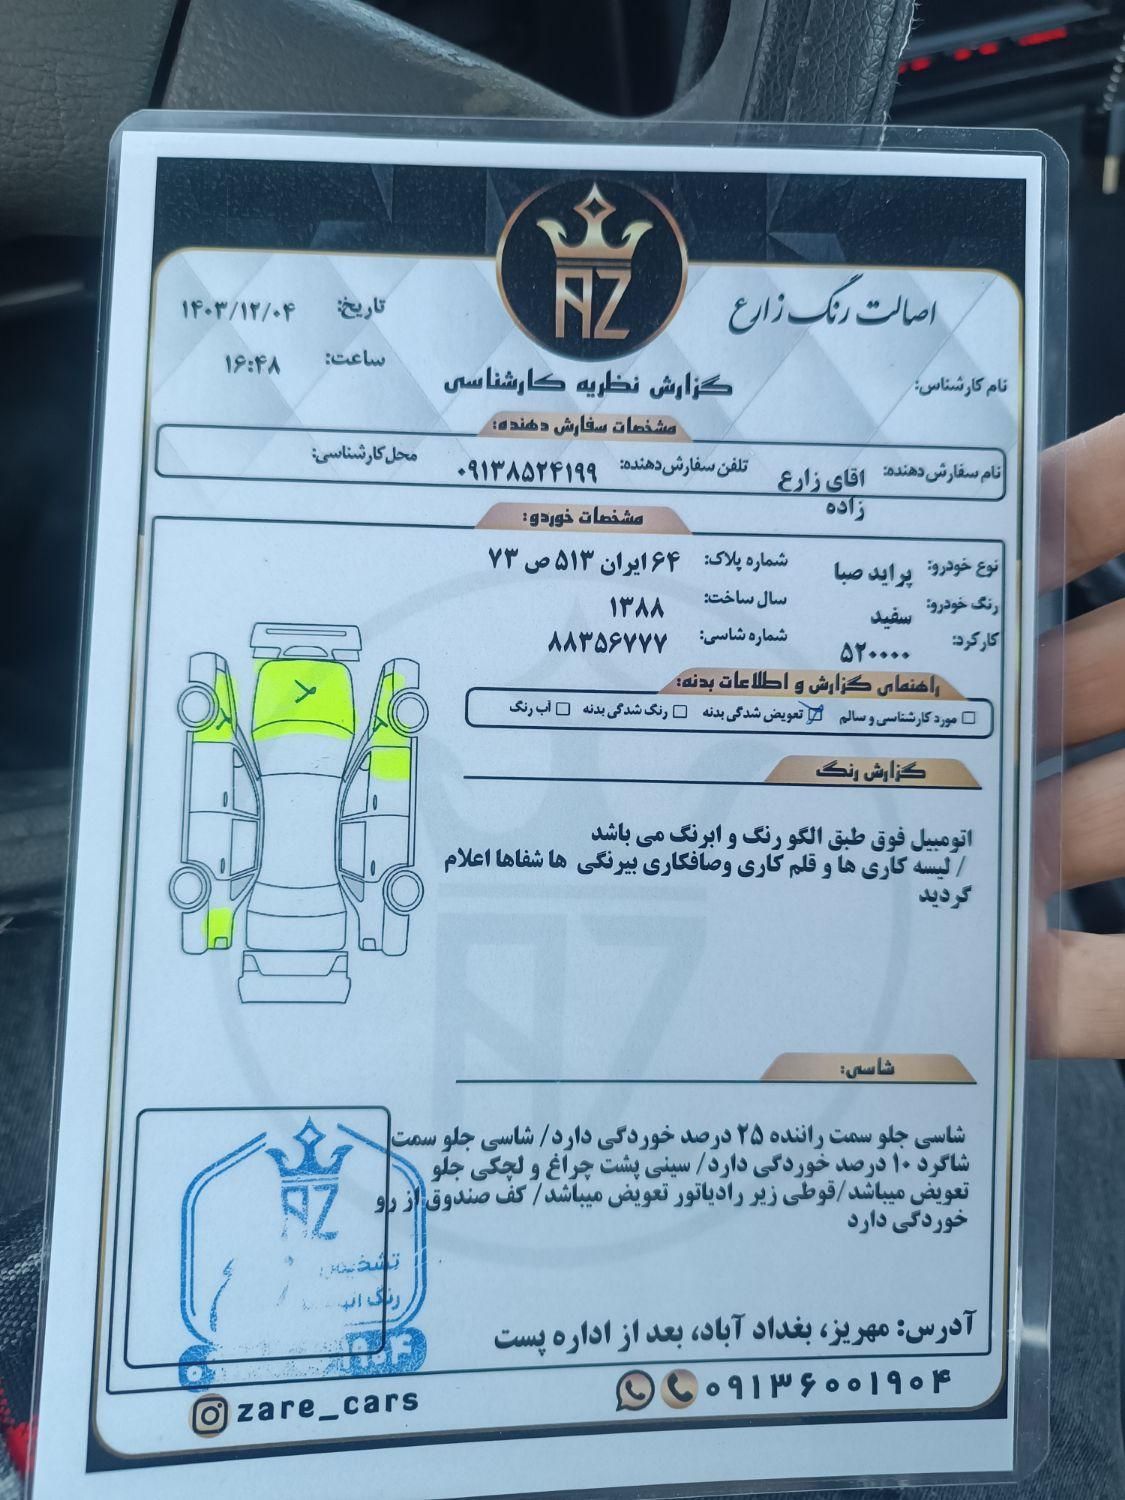 AZ
اصالت رنگ زارع
تاریخ: ۱۴۰۳/۱۲/۰۴
ساعت: ۱۶:۴۸
گزارش نظریه کارشناسی
نام کارشناس:
مشخصات سفارش دهنده:
نام سفارش‌دهنده: اقای زارع زاده
تلفن سفارش‌دهنده: ۰۹۱۳۸۵۲۴۱۹۹
محل‌کارشناسی:
مشخصات خوردو:
نوع خودرو: پراید صبا
شماره پلاک: ۶۴ ایران ۵۱۳ ص ۷۳
رنگ خودرو: سفید
سال ساخت: ۱۳۸۸
کارکرد: ۵۲۰۰۰۰
شماره شاسی: ۸۸۳۵۶۷۷۷
راهنمای گزارش و اطلاعات بدنه:
مورد کارشناسی و سالم تعویض شدگی بدنه رنگ شدگی بدنه آب رنگ
گزارش رنگ
اتومبیل فوق طبق الگو رنگ و ابرنگ می باشد
/ لیسه کاری ها و قلم کاری وصافکاری بیرنگی ها شفاها اعلام
گردید
شاسی:
شاسی جلو سمت راننده ۲۵ درصد خوردگی دارد/ شاسی جلو سمت
شاگرد ۱۰ درصد خوردگی دارد/ سینی پشت چراغ و لچکی جلو
تعویض میباشد/قوطی زیر رادیاتور تعویض میباشد/ کف صندوق از رو
خوردگی دارد
AZ
تشخیص
رنگ
آدرس: مهریز، بغداد آباد، بعد از اداره پست
۰۹۱۳۶۰۰۱۹۰۴
zare_cars